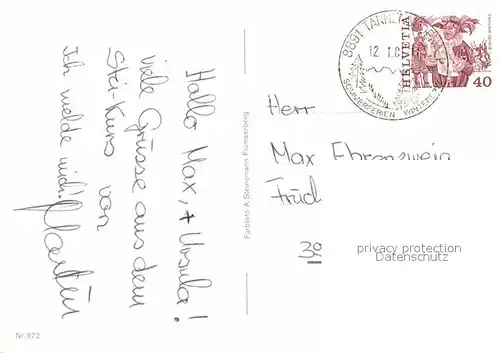 Hallo Max, + Ursula!
viele Grüsse aus dem
Ski-Kurs von
Ich melde mich! Martin
Farbfoto A. Steinemann Flumserberg
Nr. 972
8891 TANNE
12. 1. 8
SOMMERFERIEN WINTER
HELVETIA
40
Herr
Max Ehrenzweig
Früd
30
privacy protection
Datenschutz